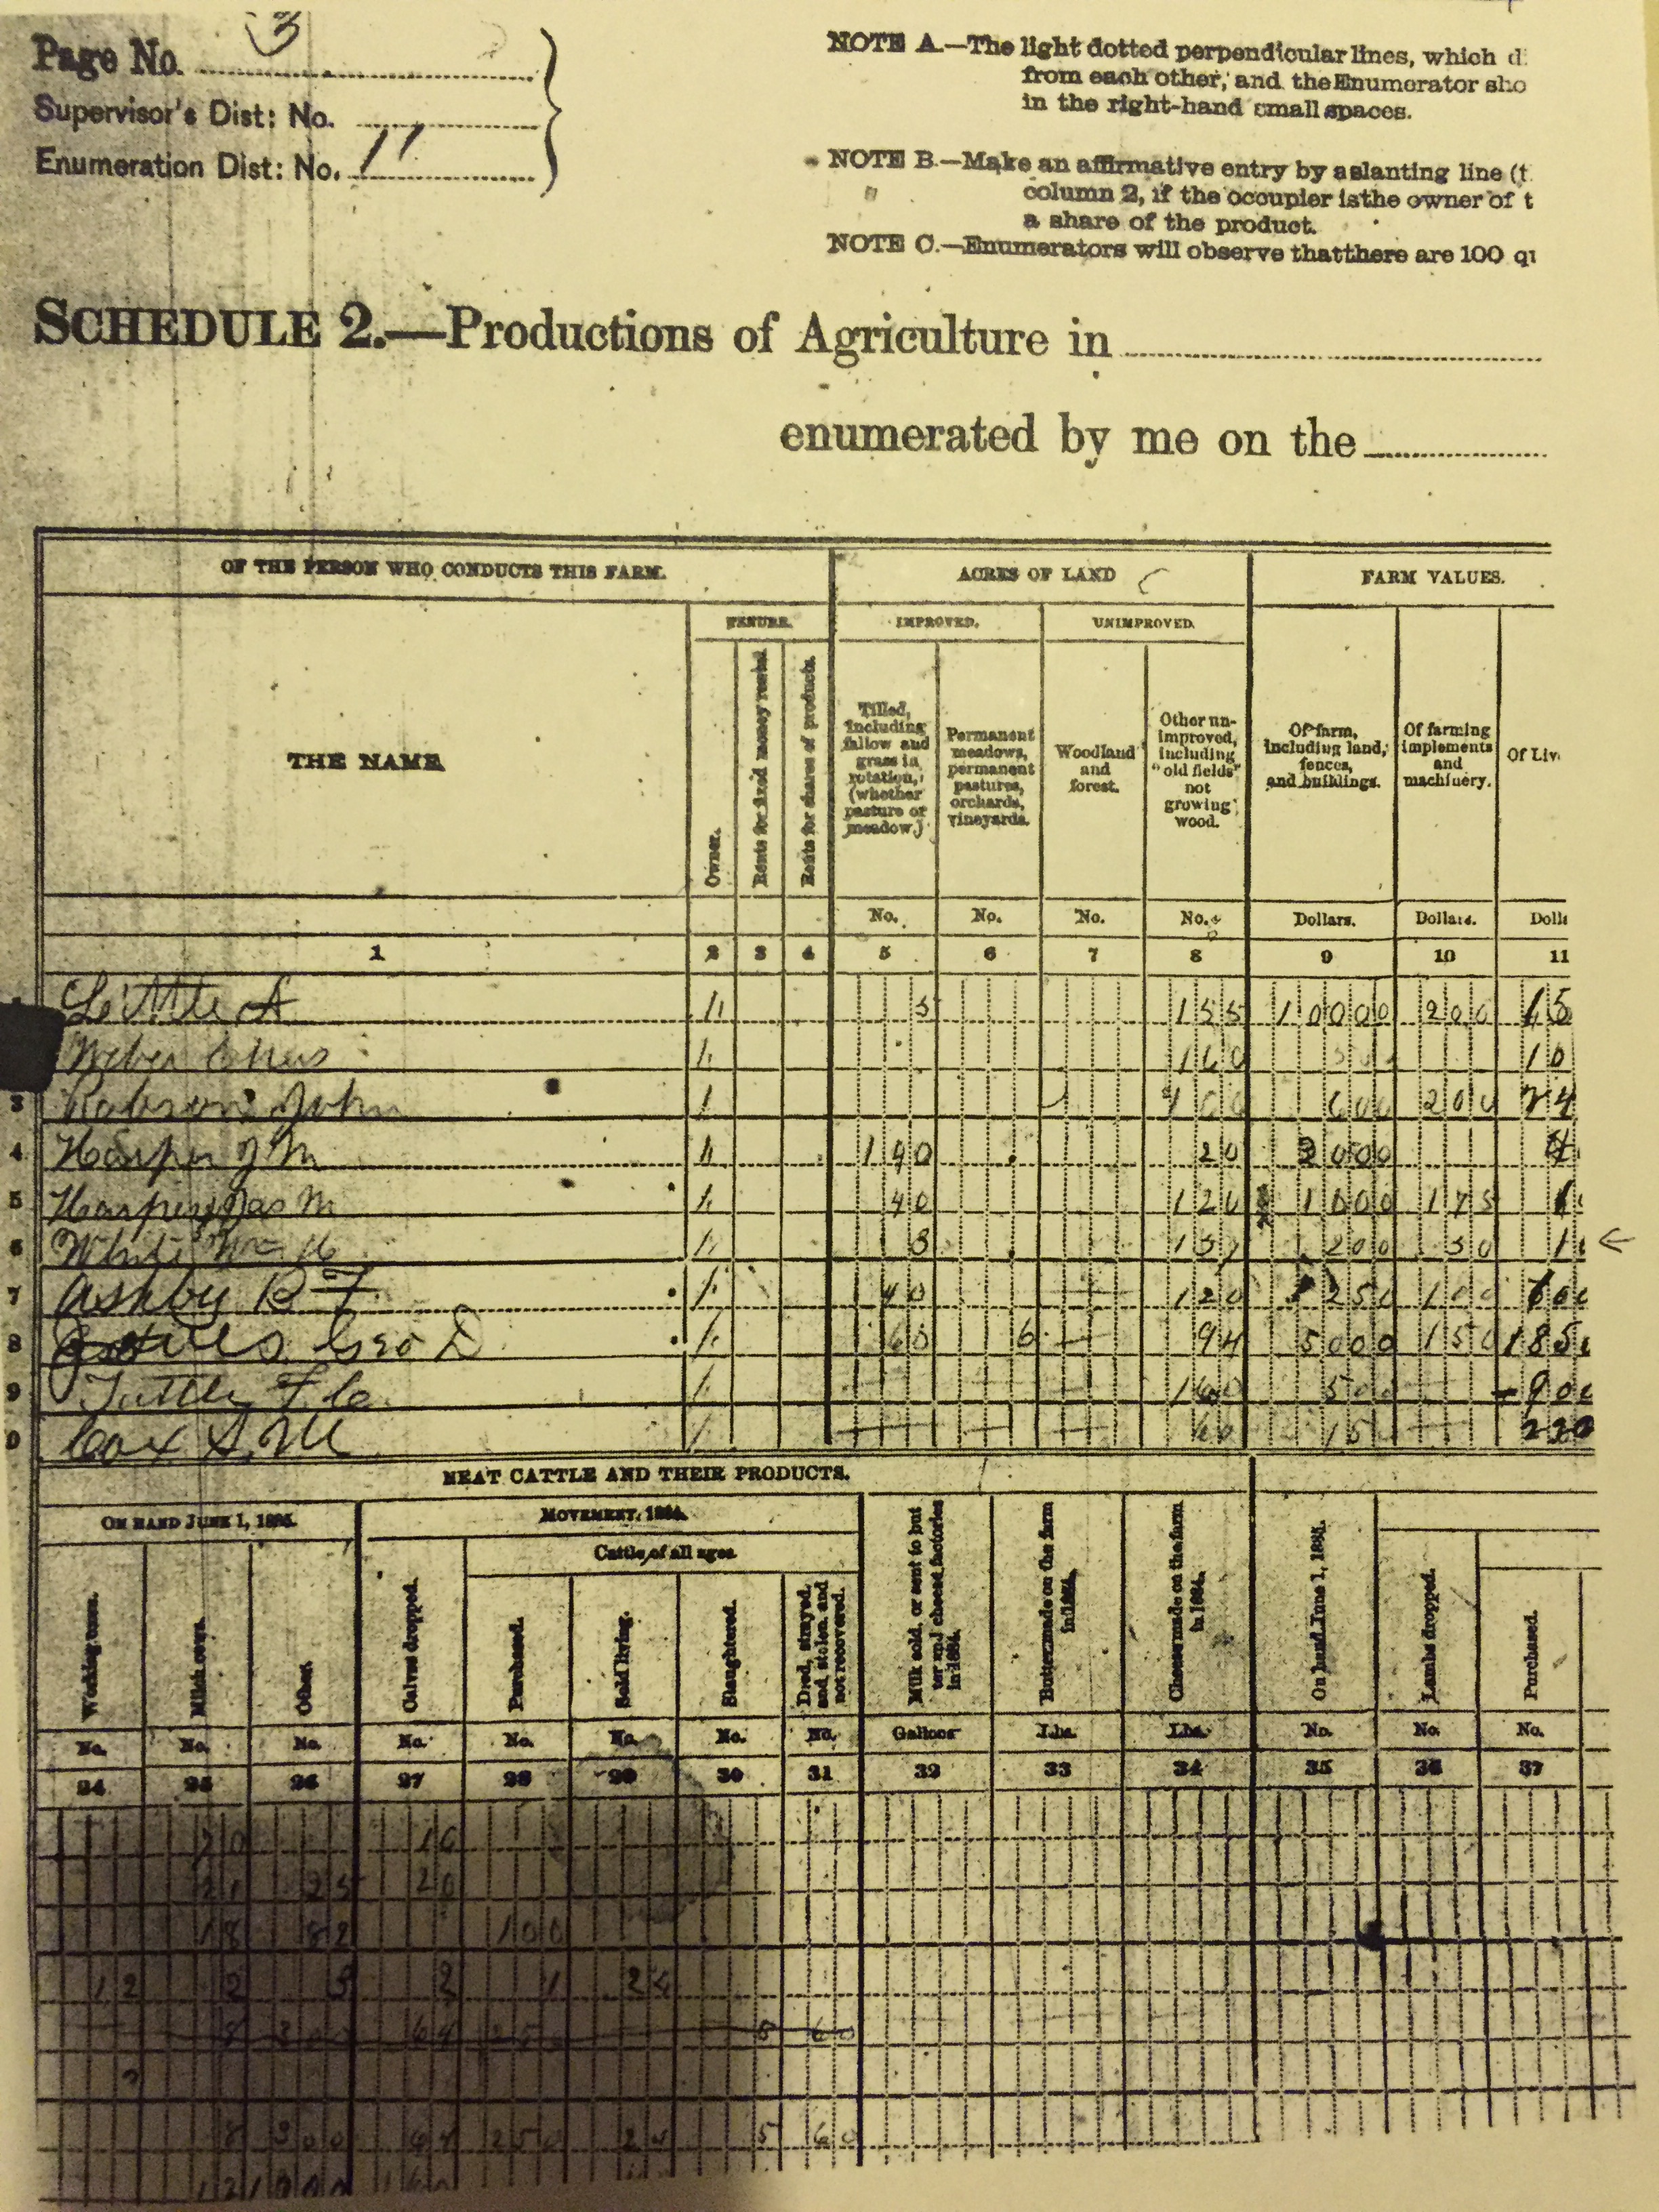 Page No. 3
Supervisor's Dist: No.
Enumeration Dist: No. 11
NOTE A.—The light dotted perpendicular lines, which d
from each other, and the Enumerator sho
in the right-hand small spaces.
NOTE B.—Make an affirmative entry by a slanting line (t
column 2, if the occupier is the owner of t
a share of the product.
NOTE C.—Enumerators will observe that there are 100 qu
SCHEDULE 2.—Productions of Agriculture in
enumerated by me on the
OF THE PERSON WHO CONDUCTS THIS FARM. ACRES OF LAND FARM VALUES.
TENURE. IMPROVED. UNIMPROVED.
THE NAME
Owner.
Rents for fixed money rental.
Rents for shares of products.
Tilled, including fallow and grass in rotation, (whether pasture or meadow.)
Permanent meadows, permanent pastures, orchards, vineyards.
Woodland and forest.
Other unimproved, including "old fields" not growing wood.
Of farm, including land, fences, and buildings.
Of farming implements and machinery.
Of Liv
No. No. No. No. Dollars. Dollars. Doll
1 2 3 4 5 6 7 8 9 10 11
Little A 5 155 10000 200 15
Weber Chas 160 10
3 Robson John 600 200 24
4 Harper J M 140 20 2000
5 Harper Jas M 40 120 1000 175
6 White Wm H 3 157 200 50 1
7 Ashby B F 40 120 250 100 600
8 Geo D 60 6 94 5000 150 185
9 Tuttle F. C. 160 500 900
0 Cox S. M 15 220
NEAT CATTLE AND THEIR PRODUCTS.
ON HAND JUNE 1, 1885. MOVEMENT, 1884.
Cattle of all ages
Working oxen.
Milch cows.
Other.
Calves dropped.
Purchased.
Sold living.
Slaughtered.
Died, strayed, and stolen, and not recovered.
Milk sold, or sent to butter and cheese factories in 1884.
Butter made on the farm in 1884.
Cheese made on the farm in 1884.
On hand June 1, 1885.
Lambs dropped.
Purchased.
No. No. No. No. No. No. No. No. Gallons Lbs. Lbs. No. No. No.
24 25 26 27 28 29 30 31 32 33 34 35 36 37
20 16
21 25 20
18 82 100
12 2 3 2 1 24
8 300 64 250 5 60
8 300 64 250 24 5 60